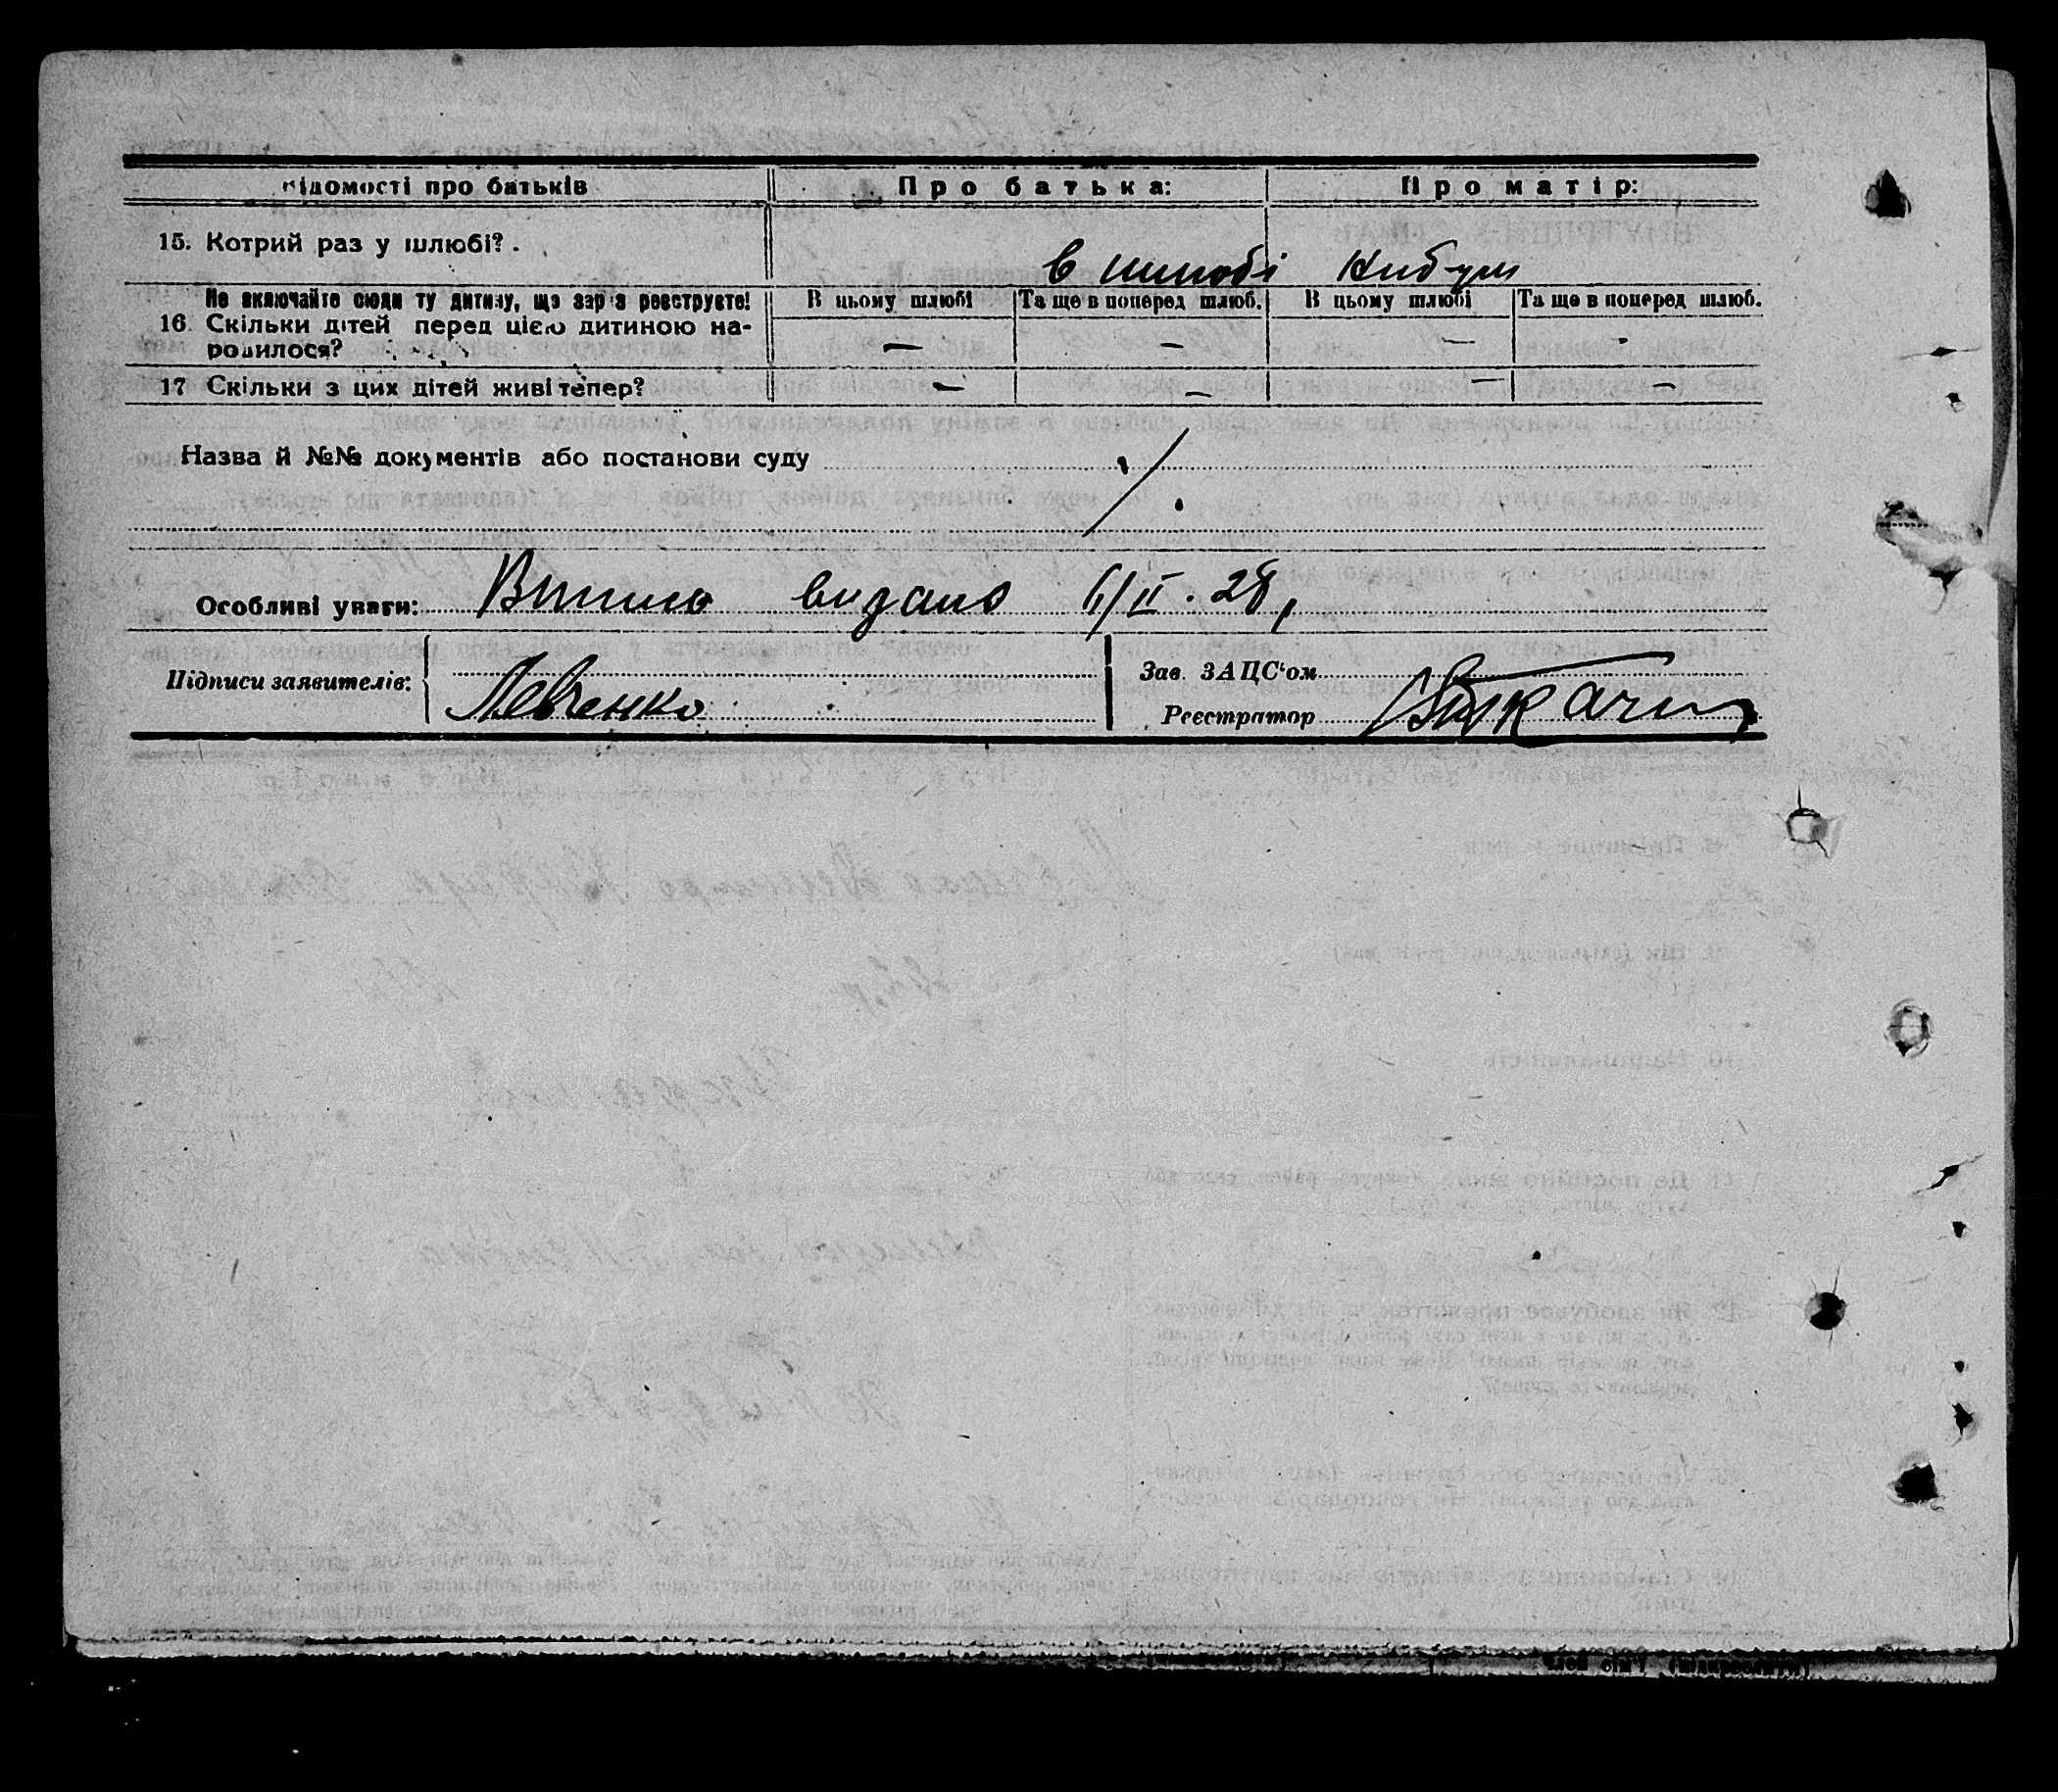 Відомості про батьків Про батька: Про матір:
15. Котрий раз у шлюбі? в шлюбі
Не включайте сюди ту дитину, що зараз реєструєте! В цьому шлюбі Та ще в поперед шлюб. В цьому шлюбі Та ще в поперед шлюб.
16. Скільки дітей перед цією дитиною на-
родилося? — — — -
17 Скільки з цих дітей живі тепер? — — — —
Назва й №№ документів або постанови суду ./.
Особливі уваги: видано 6/II. 28,
Підписи заявителів: Левченко
Зав. ЗАЦС'ом
Реєстратор